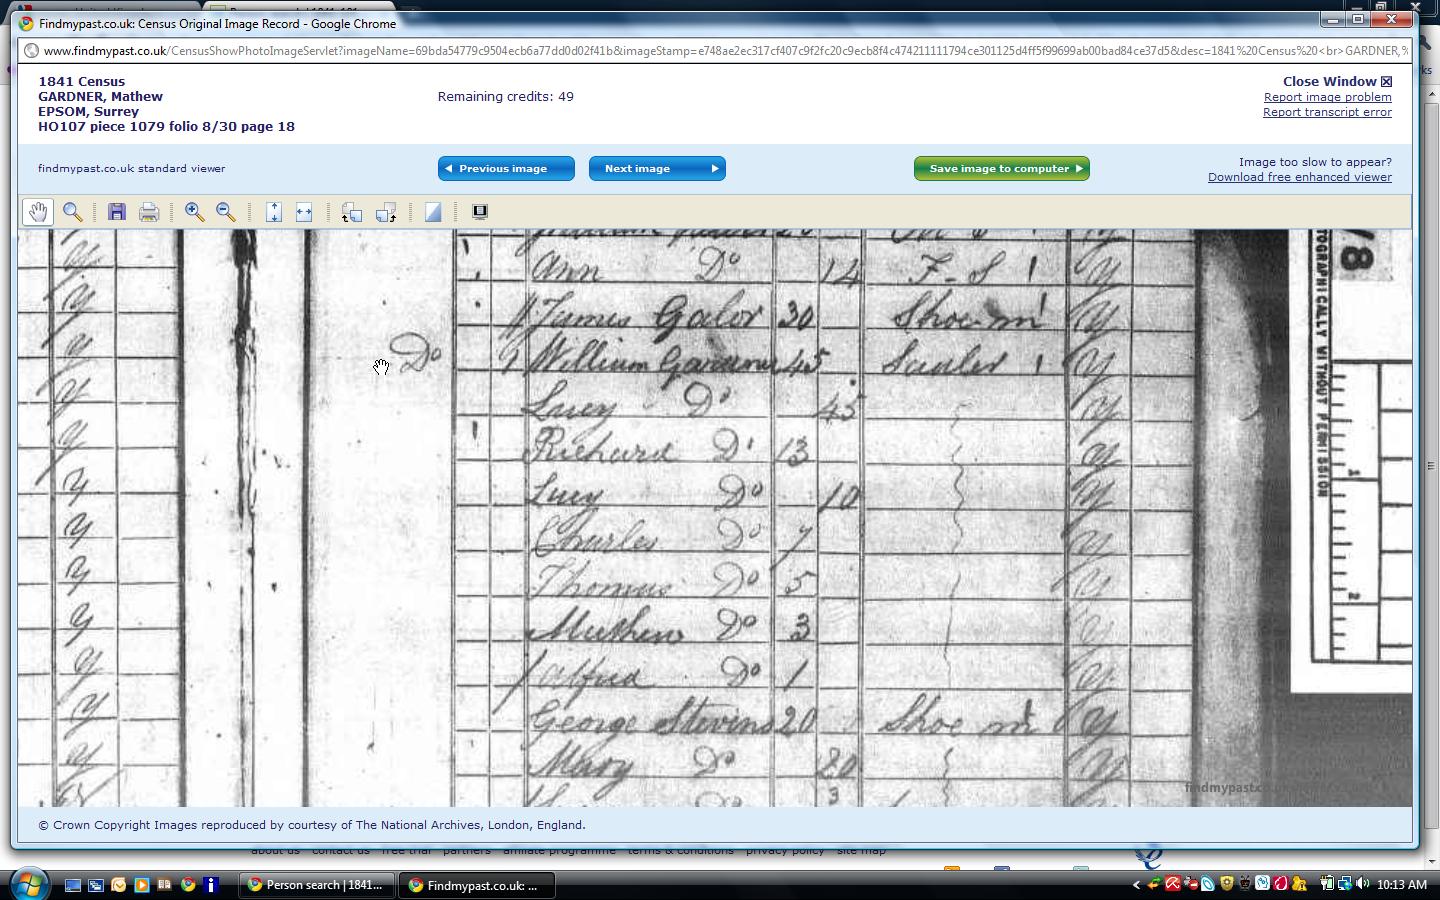 Findmypast.co.uk: Census Original Image Record - Google Chrome
www.findmypast.co.uk/CensusShowPhotoImageServlet?imageName=69bda54779c9504ecb6a77dd0d02f41b&imageStamp=e748ae2ec317cf407c9f2fc20c9ecb8f4c474211111794ce301125d4ff5f99699ab00bad84ce37d5&desc=1841%20Census%20<br>GARDNER,%
1841 Census
GARDNER, Mathew
EPSOM, Surrey
HO107 piece 1079 folio 8/30 page 18
Remaining credits: 49
Close Window
Report image problem
Report transcript error
findmypast.co.uk standard viewer
Previous image
Next image
Save image to computer
Image too slow to appear?
Download free enhanced viewer
Ann Do 14 F-S y
James Galor 30 Shoe-m y
Do William Gardner 45 Sadler y
Lucy Do 45 y
Richard Do 13 y
Lucy Do 10 y
Charles Do 7 y
Thomas Do 5 y
Mathew Do 3 y
Alfred Do 1 y
George Stevens 20 Shoe m y
Mary Do 20 y
/8
TOGRAPHICALLY WITHOUT PERMISSION
1
2
findmypast.co.uk
© Crown Copyright Images reproduced by courtesy of The National Archives, London, England.
about us contact us free trial partners affiliate programme terms & conditions privacy policy site map
Person search | 1841...
Findmypast.co.uk: ...
10:13 AM